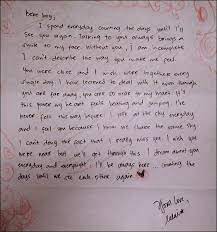 Dear boy,
I spend everyday counting the days until I'll
see you again. Talking to you always brings a
smile to my face. Without you, I am incomplete
I can't describe the way you make me feel.
You were close and I wish we were together every
single day. I learned to deal with it even though
you are far away, you are so near to my heart. It's
this power my heart feels leaping and jumping. I've
never felt this way before. I look at the sky everyday
and I feel you because I know we share the same sky
I can't deny the fact that I really miss you. I wish you
were near but we'll get through this. I dream about you
everyday and everynight. I'll be always here counting the
days until we see each other again
Your love,